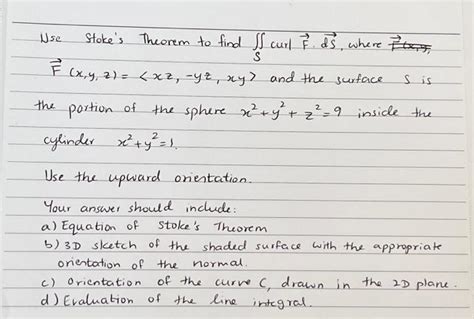 Use Stoke's Theorem to find ∬ curl F⃗ . dS⃗, where
S
F⃗ (x,y,z) = <xz, -yz, xy> and the surface S is
the portion of the sphere x² + y² + z² = 9 inside the
cylinder x² + y² = 1.
Use the upward orientation.
Your answer should include:
a) Equation of Stoke's Theorem
b) 3D sketch of the shaded surface with the appropriate
orientation of the normal.
c) Orientation of the curve C, drawn in the 2D plane.
d) Evaluation of the line integral.